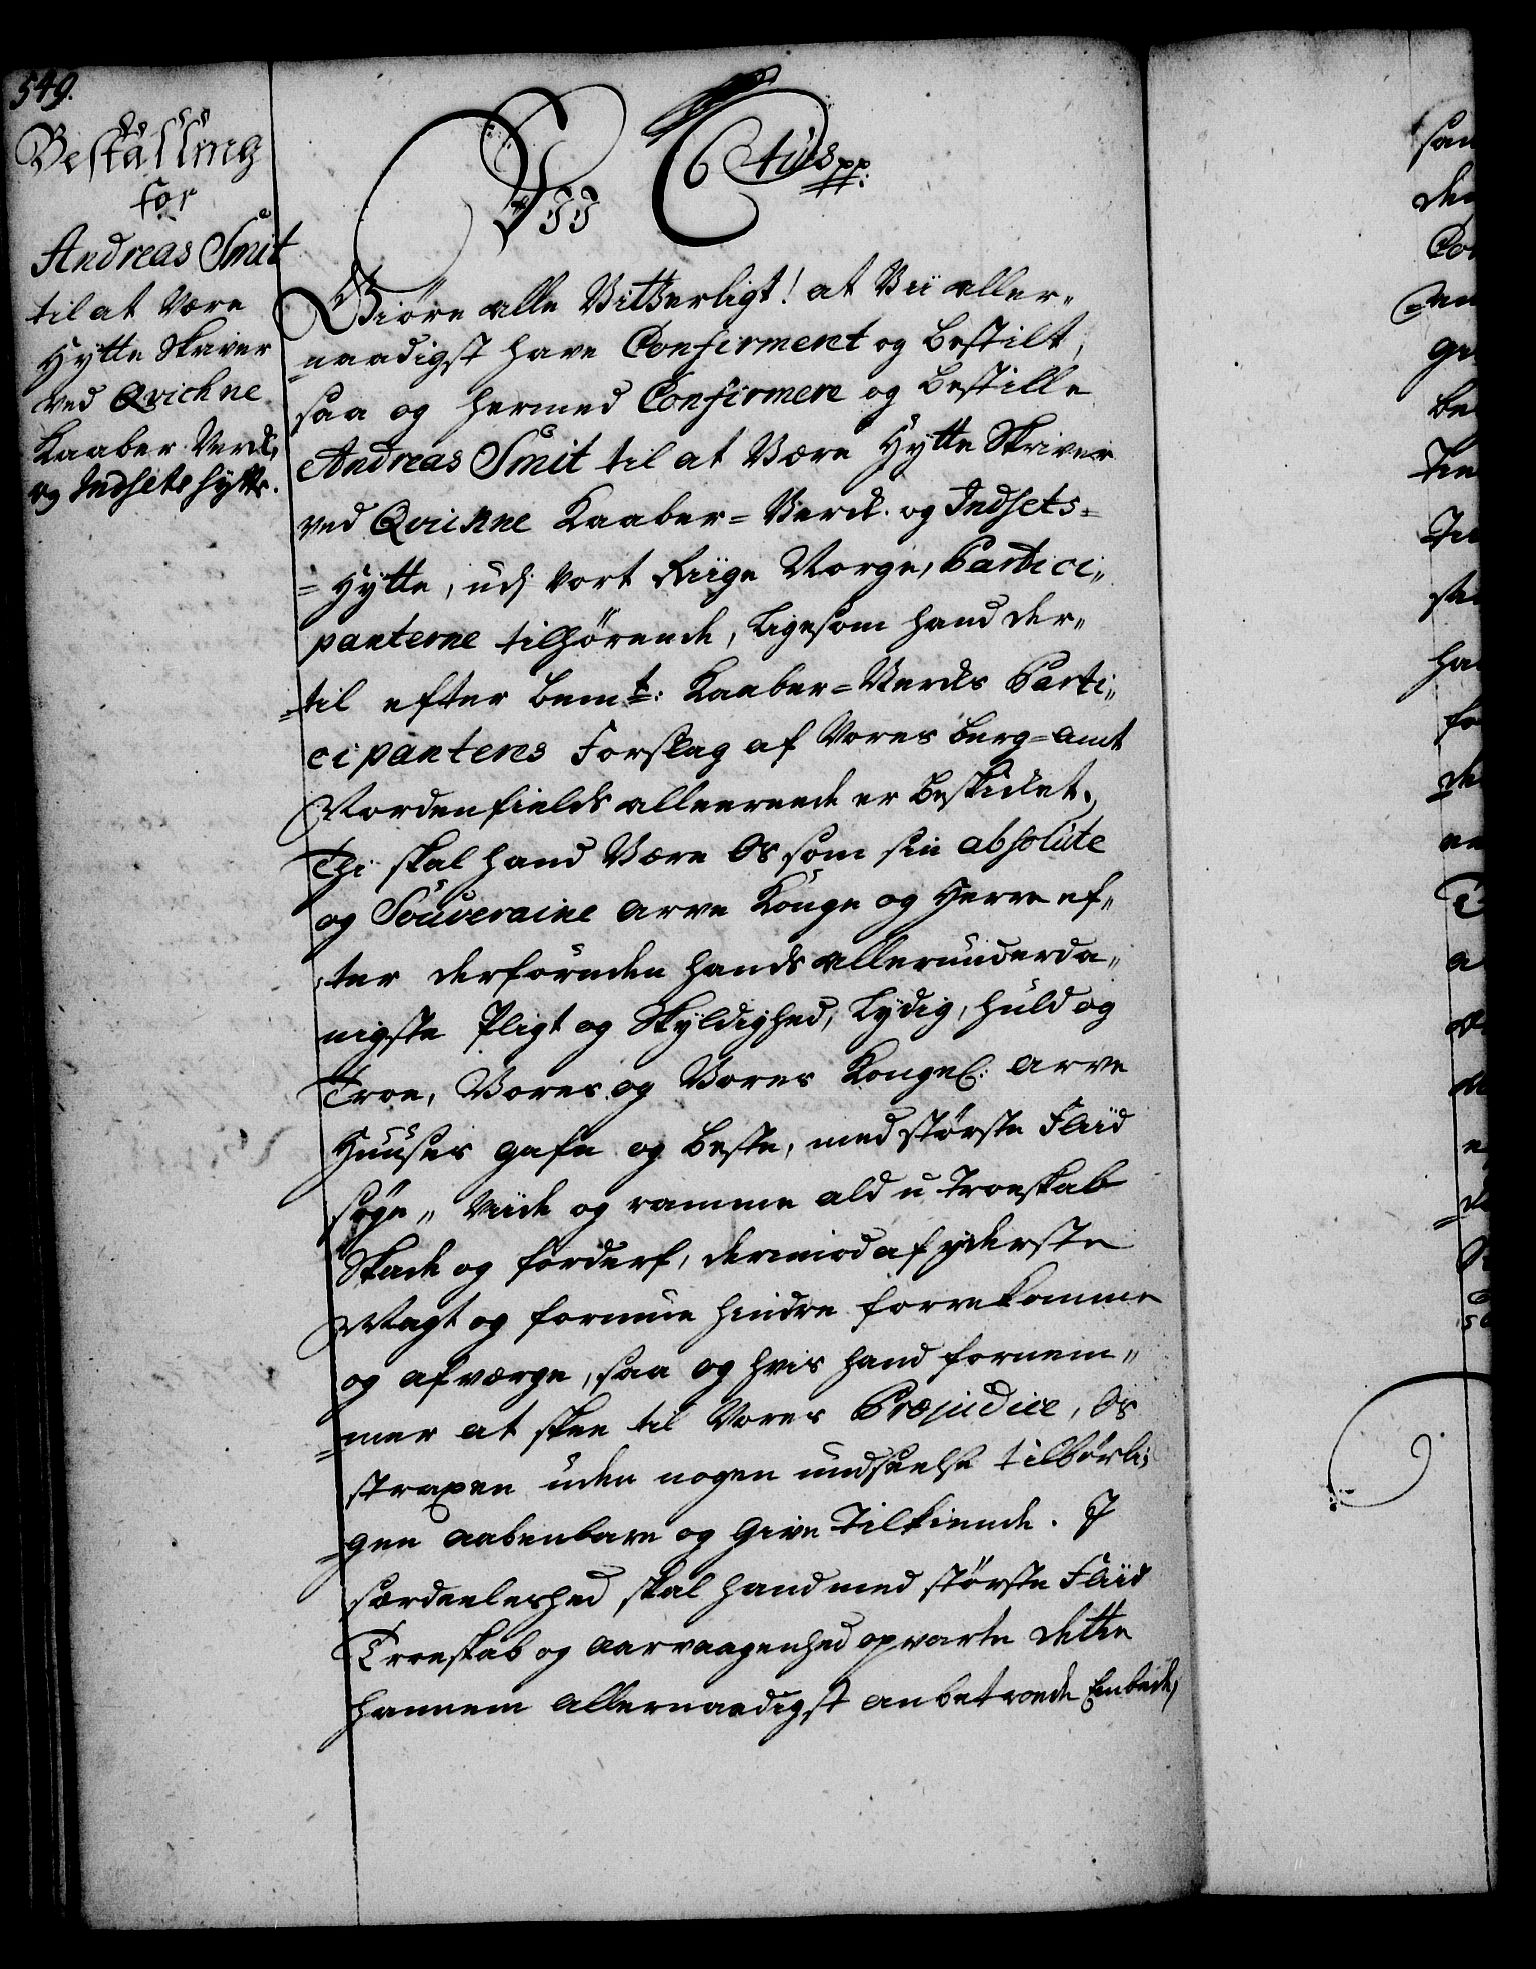 549.
Bestalling
for
Andreas Smit
til at være
Hytte Skriver
ved Qvichne
Kaaber Verck,
og Indsets hytte.
Vii Ctus pp:
Giöre alle Vitterligt! at Vii aller„
„naadigst have Confirmert og bestilt,
saa og hermed Confirmere og bestille
Andreas Smit til at Være Hytte Skriver
ved Qvickne Kaaber=Verck og Indsets=
=Hytte, udj vort Riige Norge, Partici„
panterne tilhörende, ligesom hand der„
„til efter bemt: Kaaber=Vercks Parti„
cipanteres Forslag af Vores berg=amt
Nordenfields allereede er beskicket.
Thi skal hand Være Os som sin absolute
og Souveraine arve Konge og Herre ef„
„ter derforuden hands allerunderda„
nigste Pligt og Skyldighed, Lydig, huld og
Troe, Vores og Vores Kongel: arve
Huuses gafn og beste, med störste Fliid
söge, Viide og ramme ald u troeskab
Skade og forderf, derimod af yderste
Magt og formue hindre forrekomme
og afværge, saa og hvis hand fornem„
„mer at skee til Vores Præjudice, Os
straxen uden nogen undseelse tilbörli„
„gen aabenbare og give tilkiende. I
særdeeleshed skal hand med störste Fliid
Troeskab og aarvaagenhed opvarte dette
hannem allernaadigst anbetroede Embede,